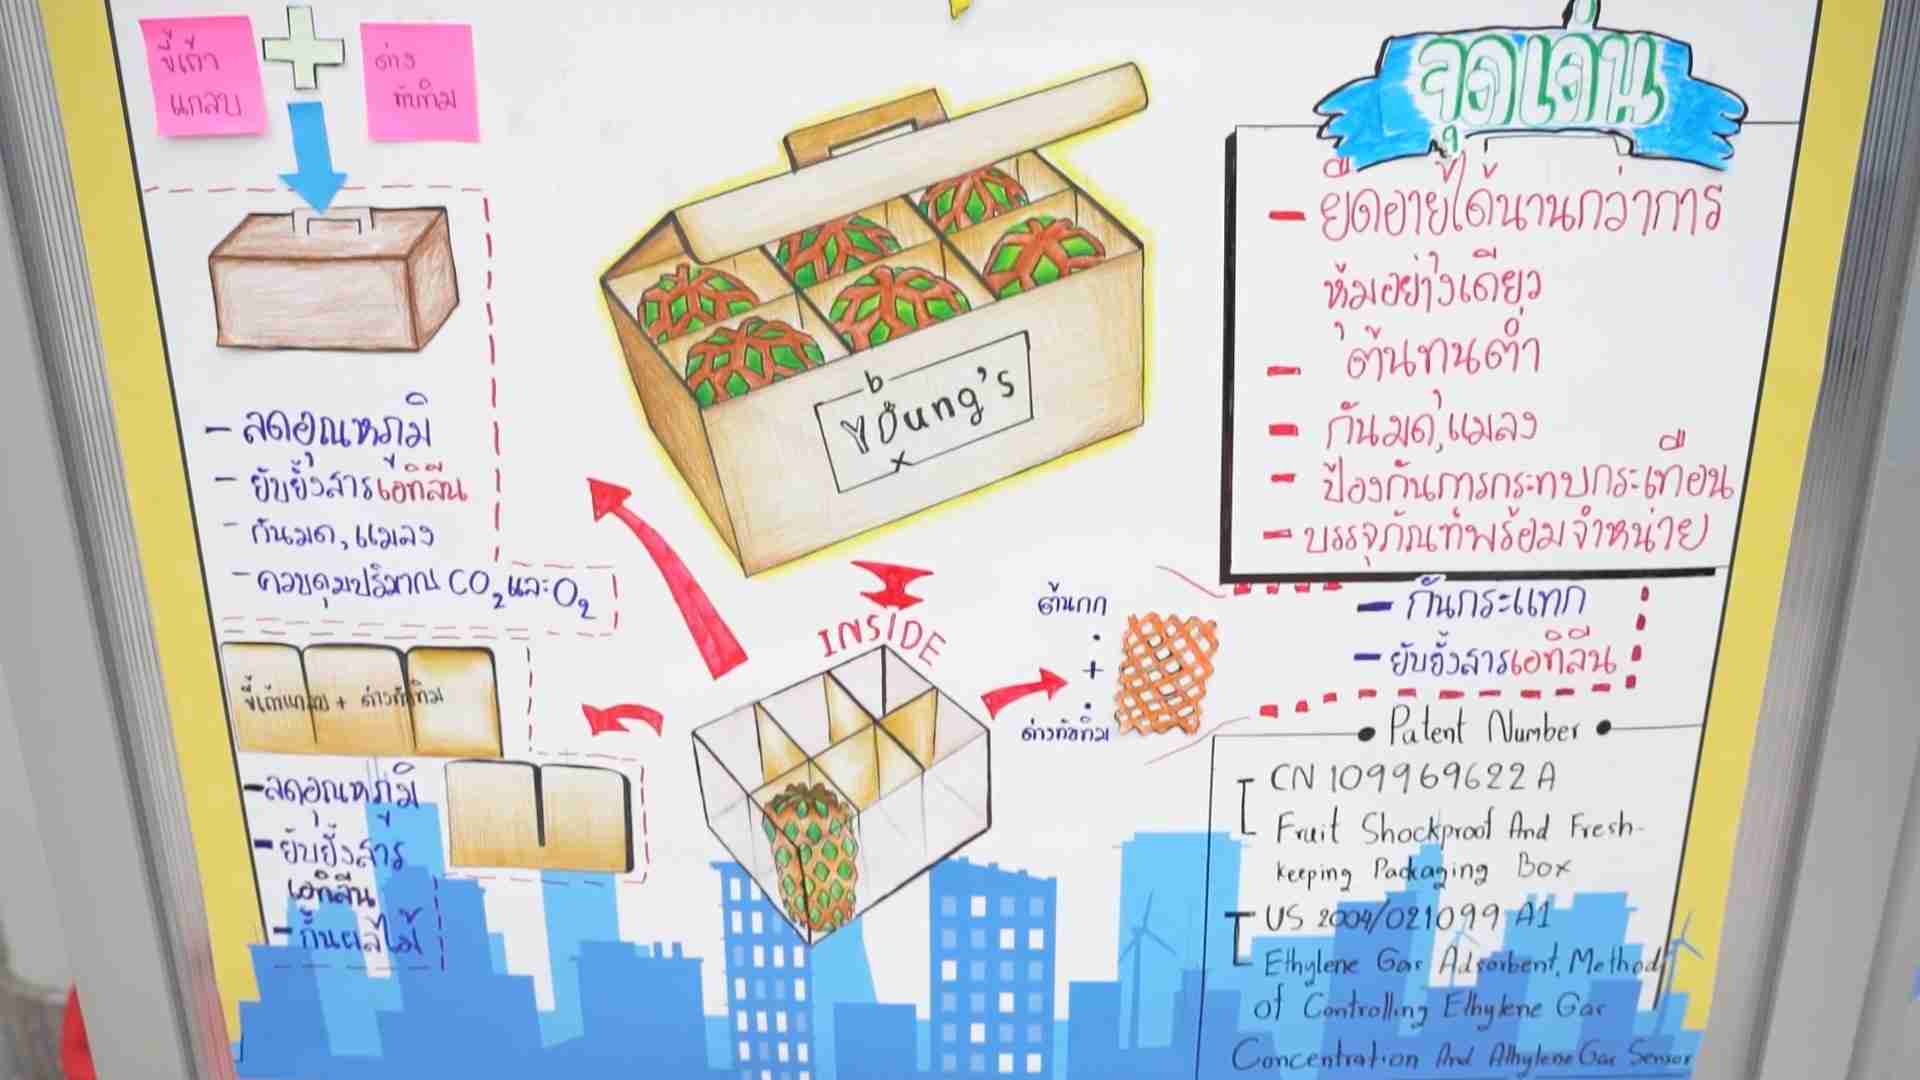 ขี้เถ้า
แกลบ
ด่าง
ทับทิม
- ลดอุณหภูมิ
- ยับยั้งสารเอทิลีน
- กันมด, แมลง
- ควบคุมปริมาณ CO2 และ O2
ขี้เถ้าแกลบ + ด่างทับทิม
- ลดอุณหภูมิ
- ยับยั้งสาร
เอทิลีน
- กั้นผลไม้
b
Young's
x
INSIDE
ต้นกก
+
ด่างทับทิม
จุดเด่น
- ยืดอายุได้นานกว่าการ
หุ้มอย่างเดียว
- ต้นทุนต่ำ
- กันมด, แมลง
- ป้องกันการกระทบกระเทือน
- บรรจุภัณฑ์พร้อมจำหน่าย
- กันกระแทก
- ยับยั้งสารเอทิลีน
• Patent Number •
CN 109969622 A
Fruit Shockproof And Fresh-
keeping Packaging Box
US 2004/021099 A1
Ethylene Gas Adsorbent, Method
of Controlling Ethylene Gas
Concentration And Athylene Gas Sensor